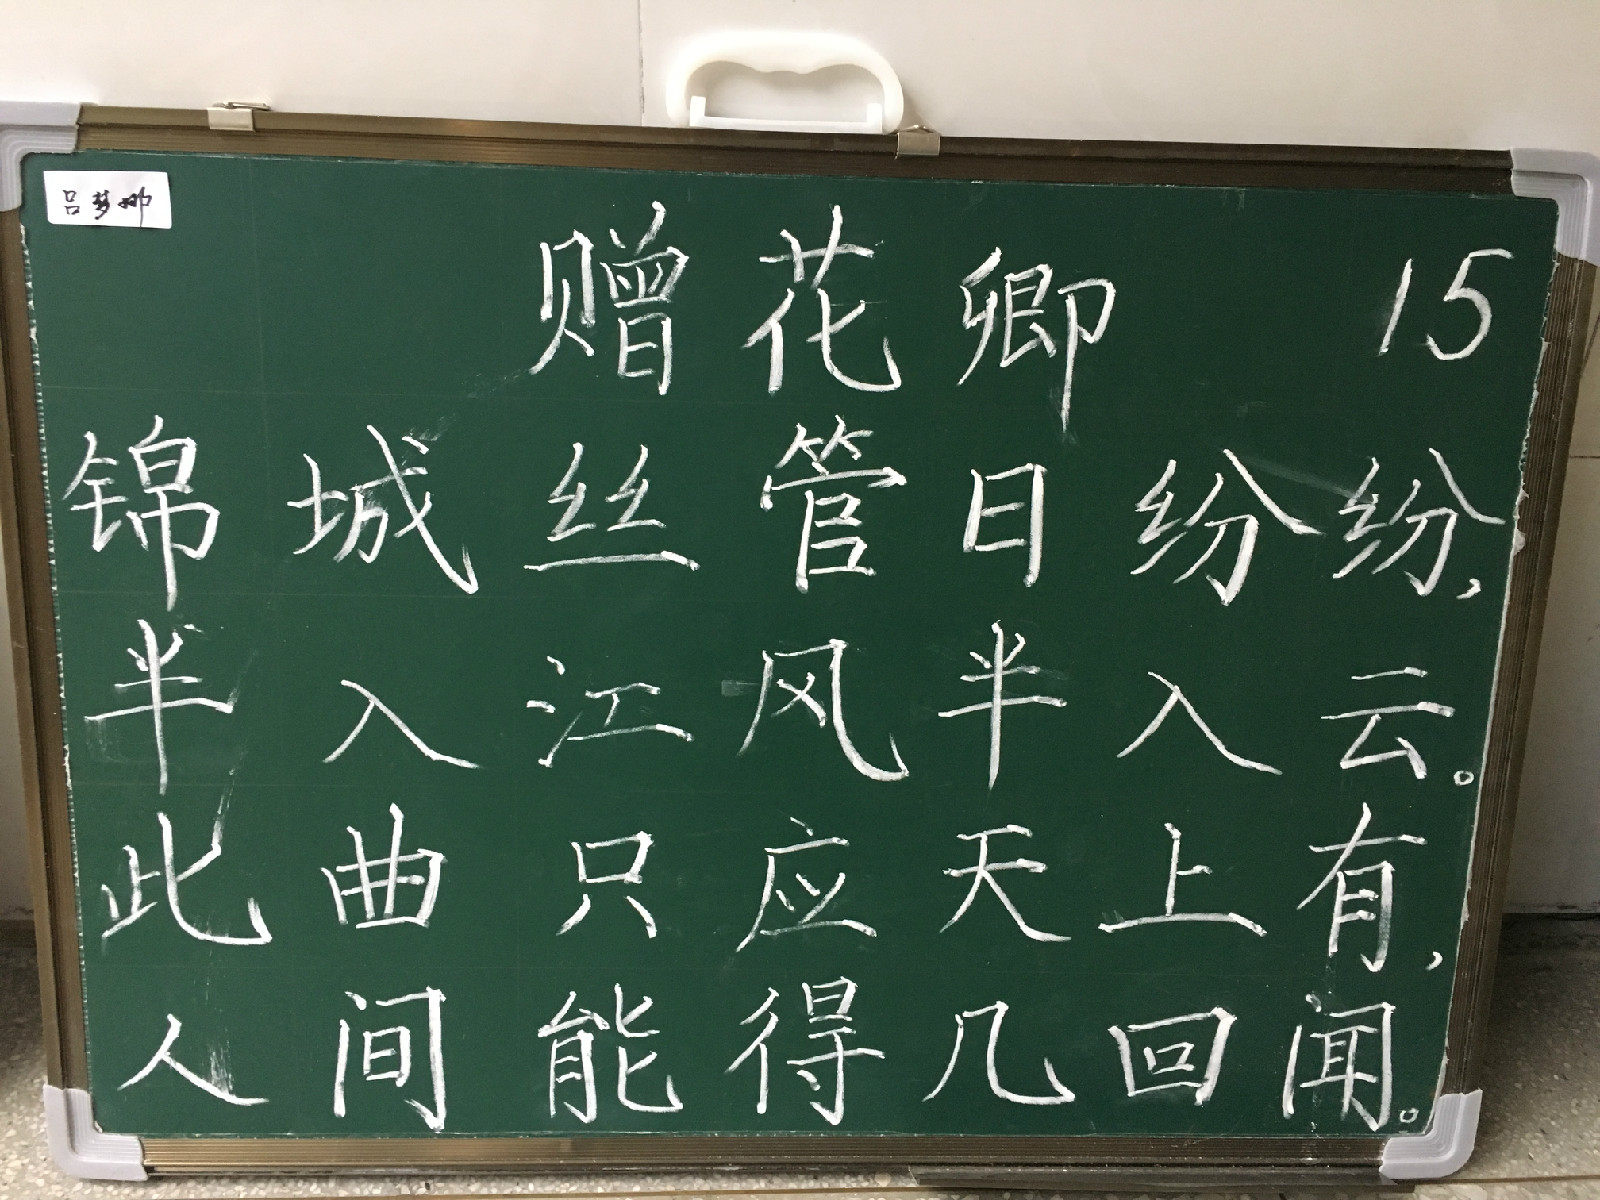 吕梦娜
赠花卿 15
锦城丝管日纷纷，
半入江风半入云。
此曲只应天上有，
人间能得几回闻。